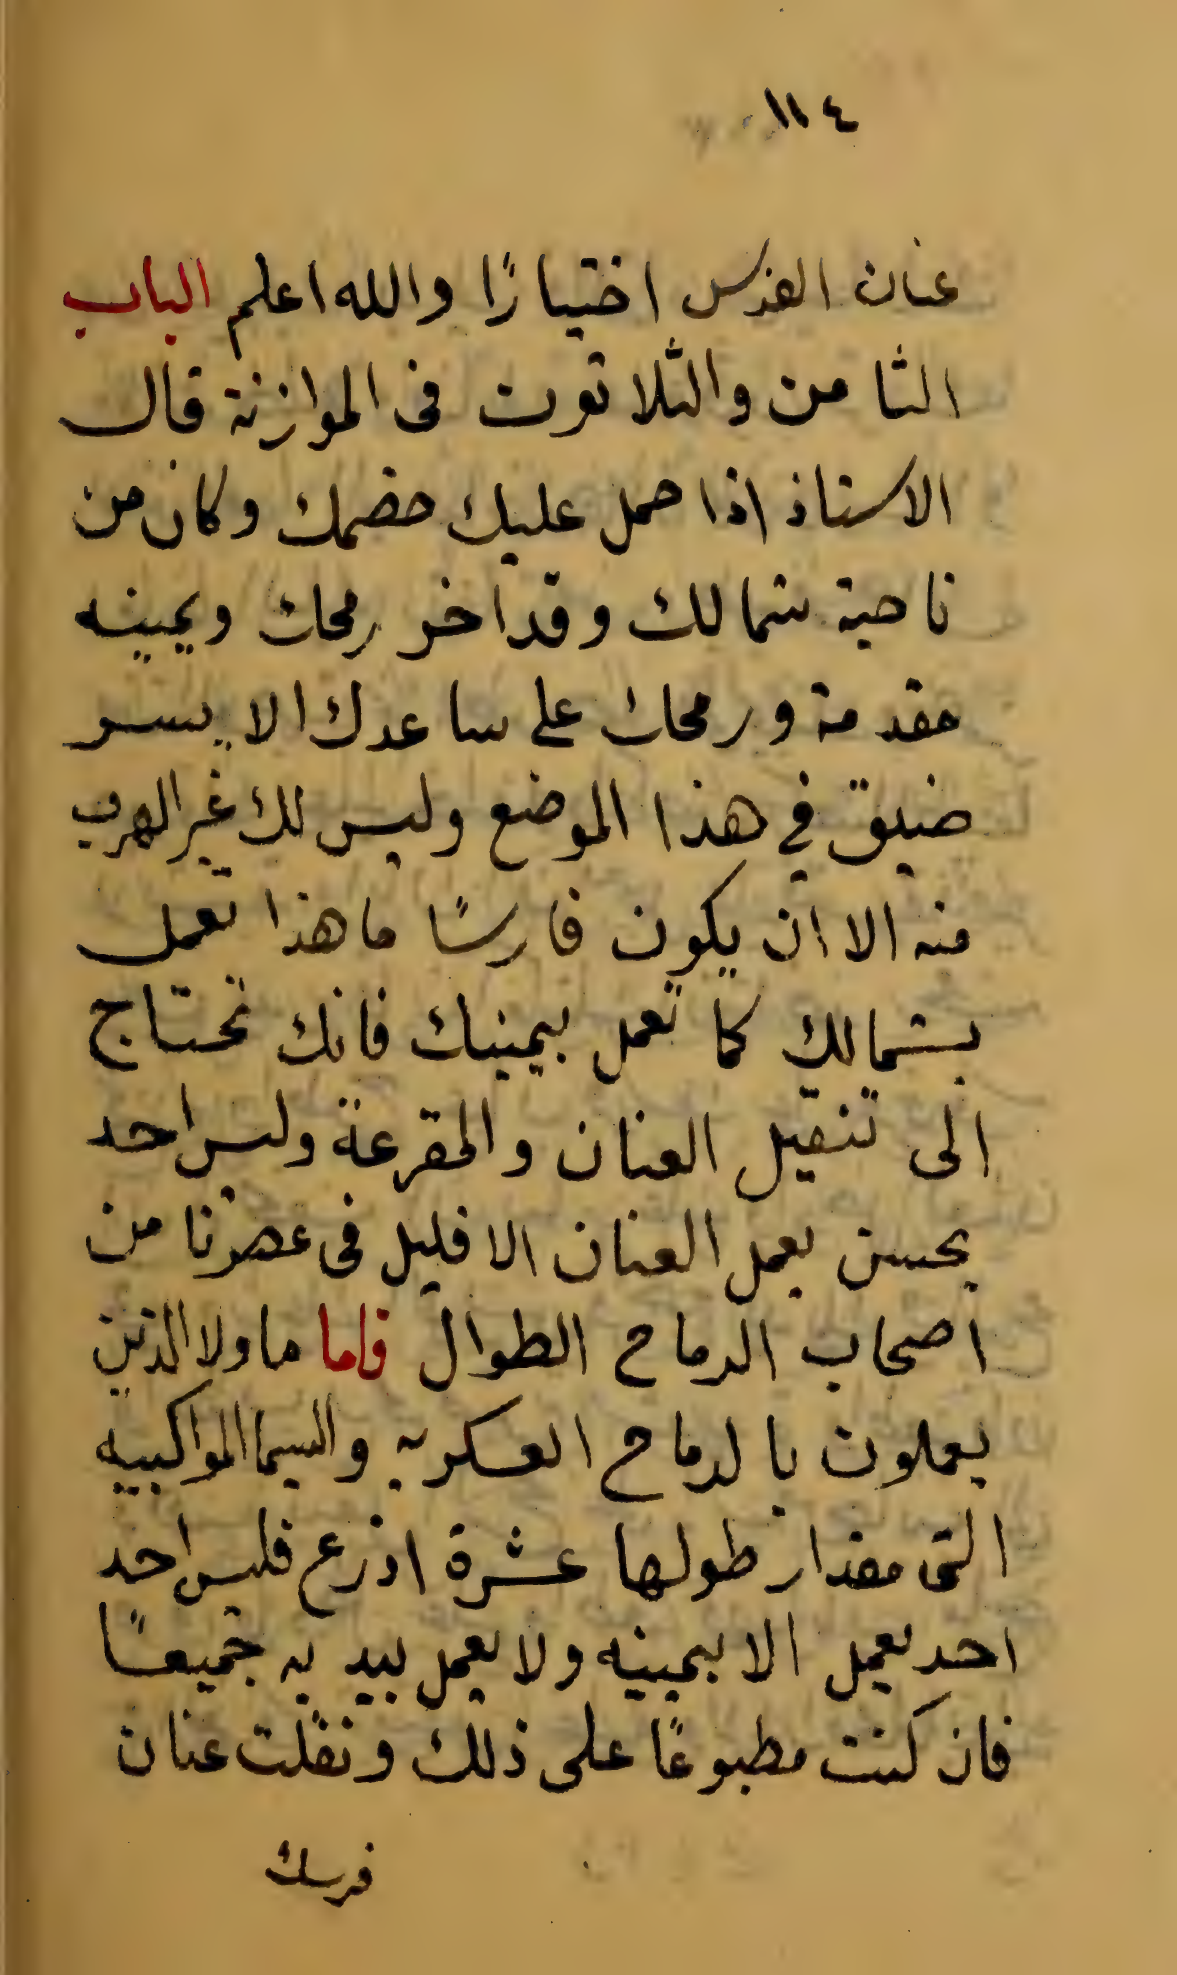 ١١٤
عنان الفرس اختيارًا والله اعلم الباب
الثامن والثلاثون فى الموازنة قال
الاستاذ اذا حمل عليك خصمك وكان من
ناحية شمالك وقد اخر رمحك ويمينه
مقدمة ورمحك على ساعدك الايسر
ضيق في هذا الموضع وليس لك غير الهرب
منه الا ان يكون فارسًا ماهذا تعمل
بشمالك كما تعمل بيمينك فانك تحتاج
الى تنقيل العنان والمقرعة وليس احد
يحسن يعمل العنان الا قليل فى عصرنا من
اصحاب الرماح الطوال فاما هاولا الذين
يعملون بالرماح العسكريه والسيما المواكبيه
التى مقدار طولها عشرة اذرع فليس احد
احد يعمل الا بيمينه ولا يعمل بيديه جميعًا
فان كنت مطبوعًا على ذلك ونقلت عنان
فرسك